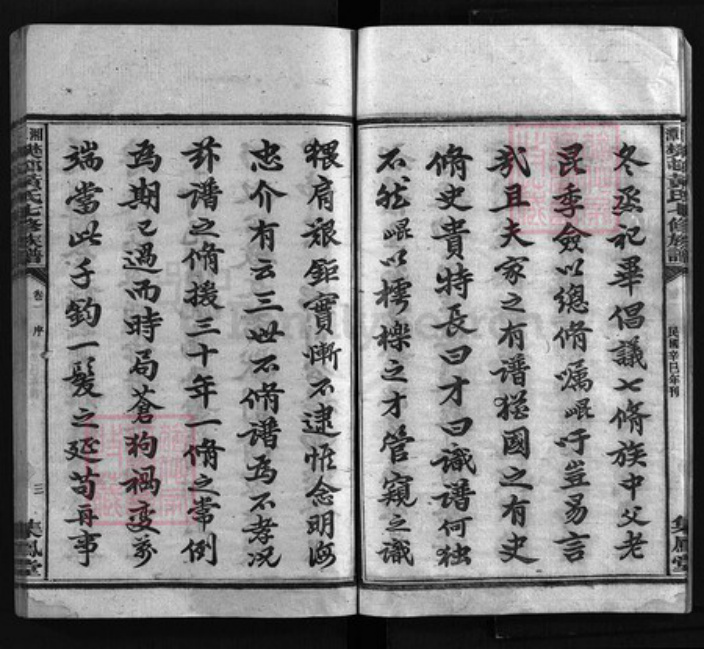 冬烝祀畢倡議七脩族中父老
昆季僉以總脩囑崐吁豈易言
哉且夫家之有譜猶國之有史
脩史貴特長曰才曰識譜何獨
不然崐以樗櫟之才管窺之識
猥肩艱鉅實慚不逮惟念明海
忠介有云三世不脩譜為不孝况
茲譜之脩援三十年一脩之常例
為期已過而時局蒼狗禍變萬
端當此千鈞一髮之延苟再事
民國辛巳年刊
卷一
序
三
集鳳堂